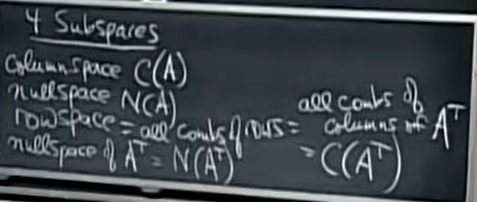 4 Subspaces
Column space C(A)
nullspace N(A)
rowspace = all combs of rows = all combs of columns of Aᵀ
= C(Aᵀ)
nullspace of Aᵀ = N(Aᵀ)